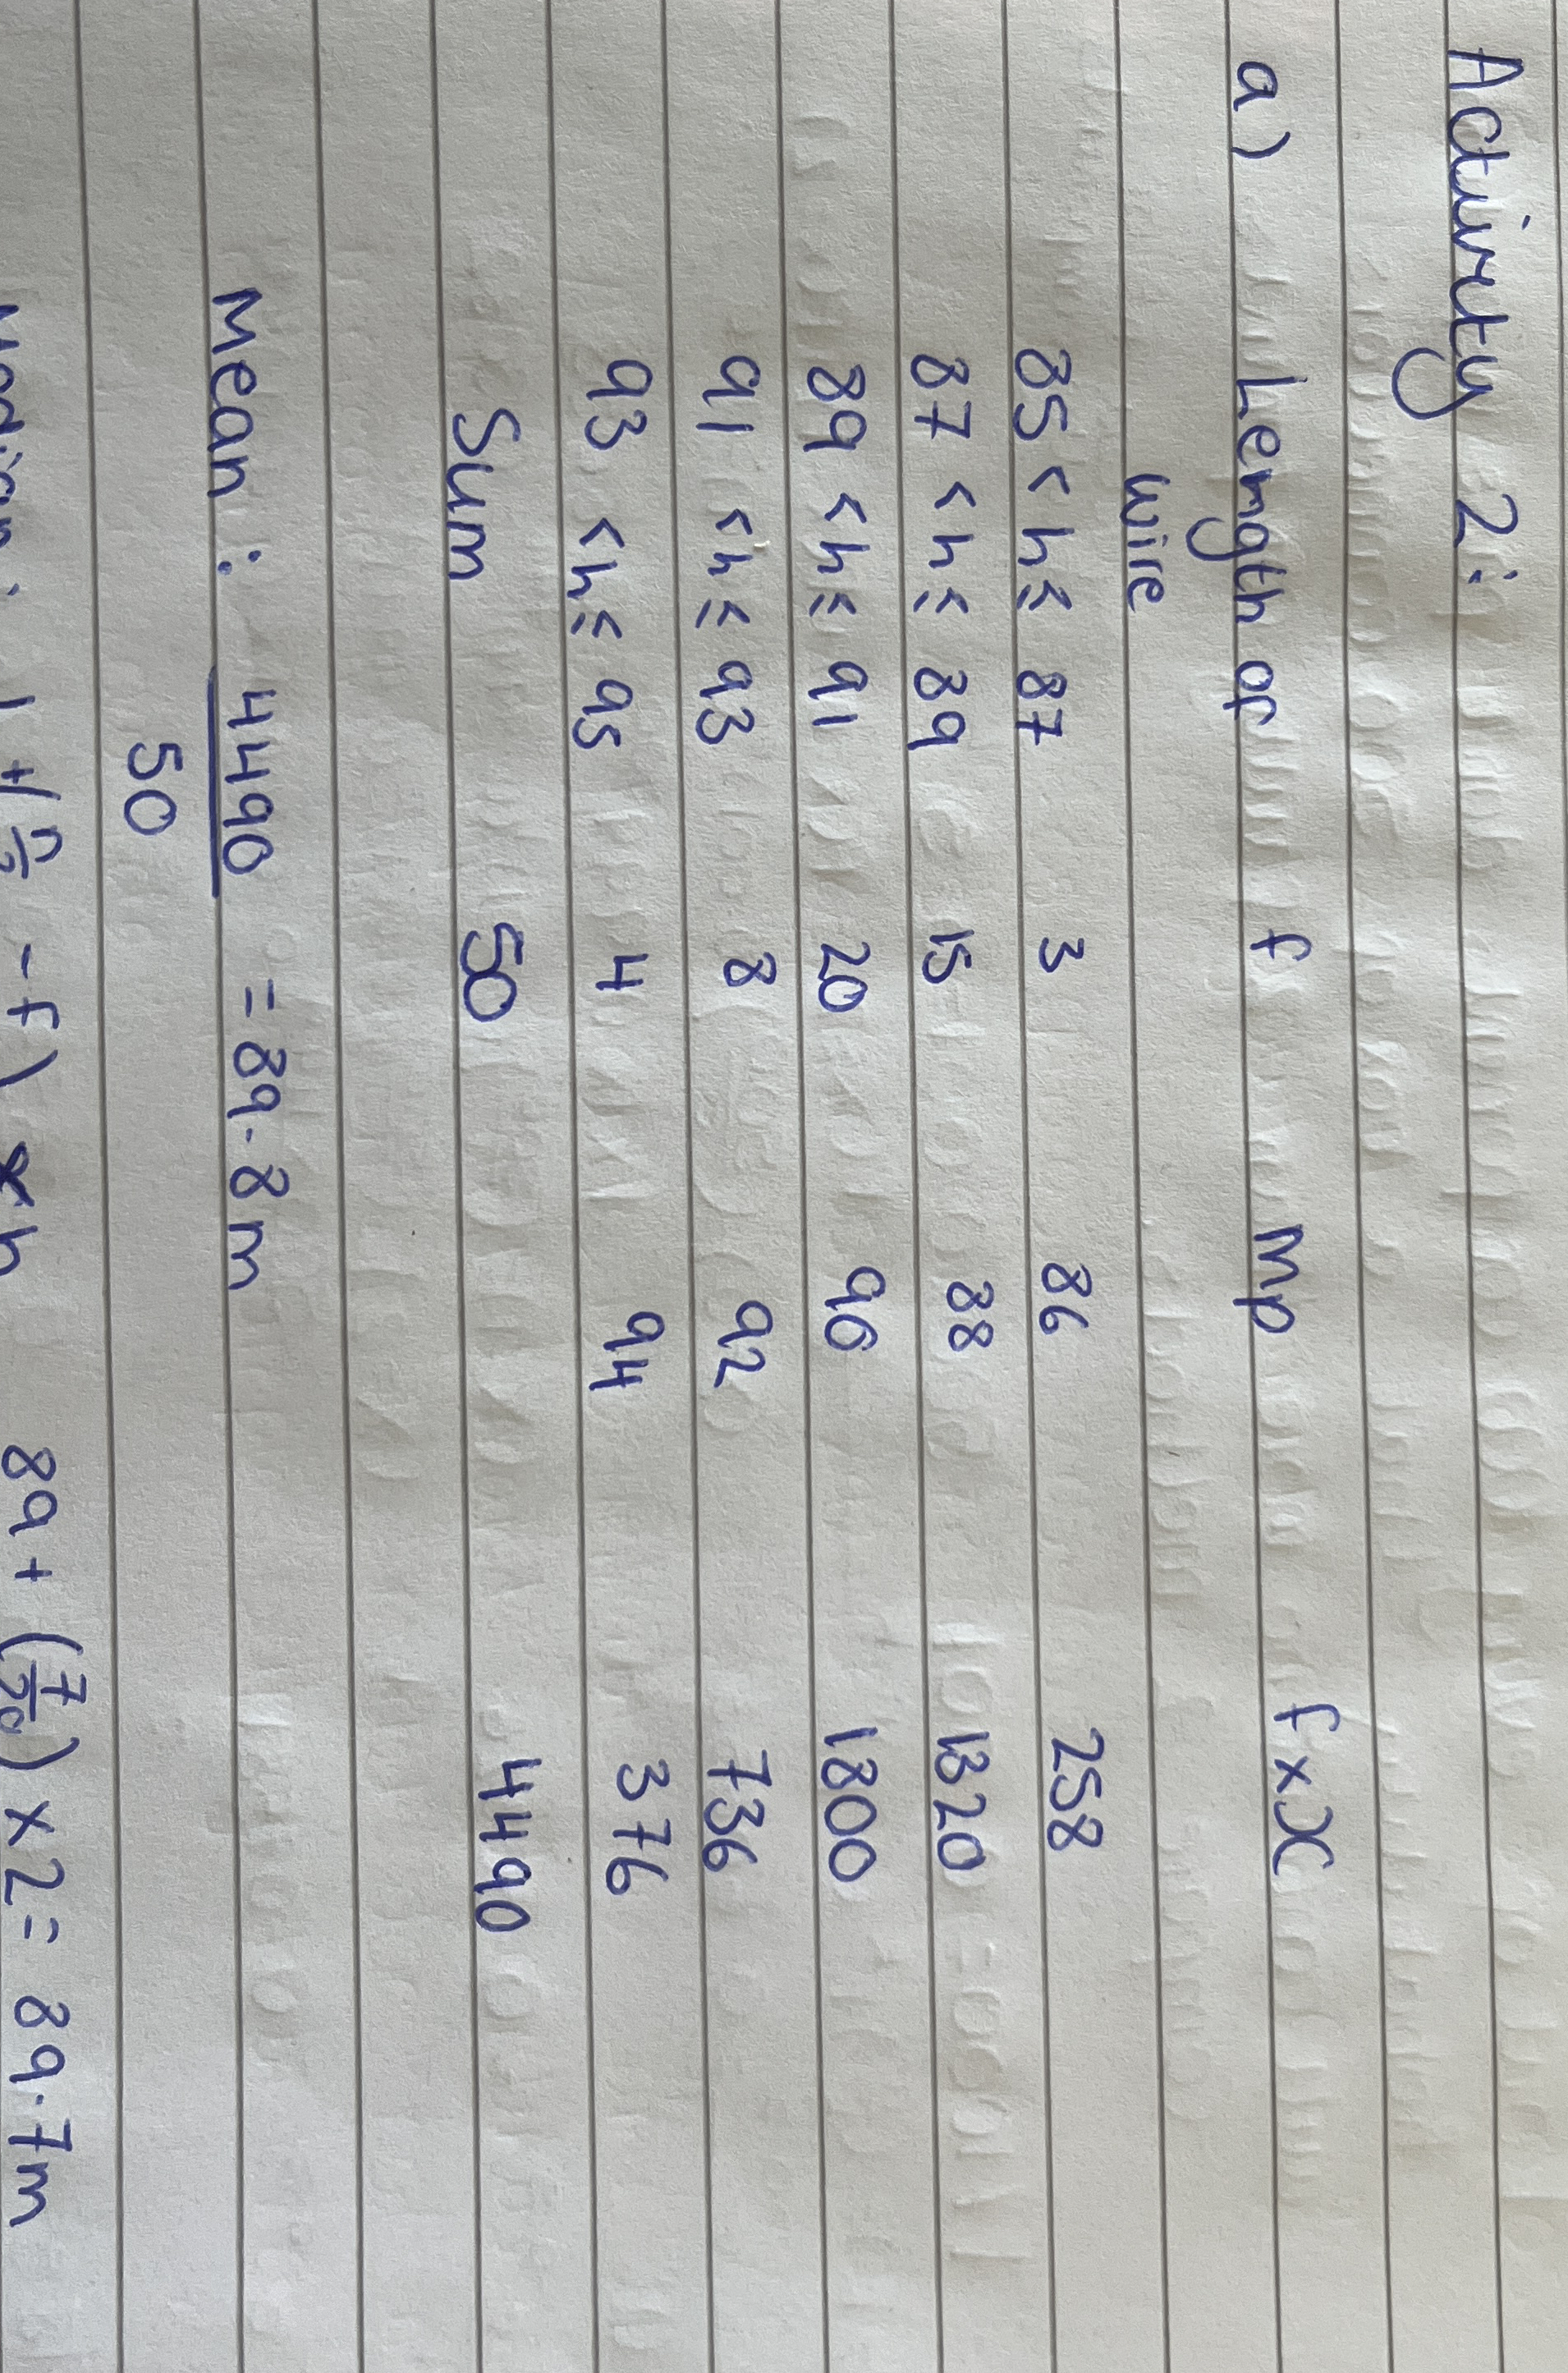 Activity 2:
a) Length of f mp f x x
wire
85 < h ≤ 87 3 86 258
87 < h ≤ 89 15 88 1320
89 < h ≤ 91 20 90 1800
91 < h ≤ 93 8 92 736
93 < h ≤ 95 4 94 376
Sum 50 4490
Mean : 4490 = 89.8m
50
Median : l + (n/2 - f) x h 89 + (7/20) x 2 = 89.7m